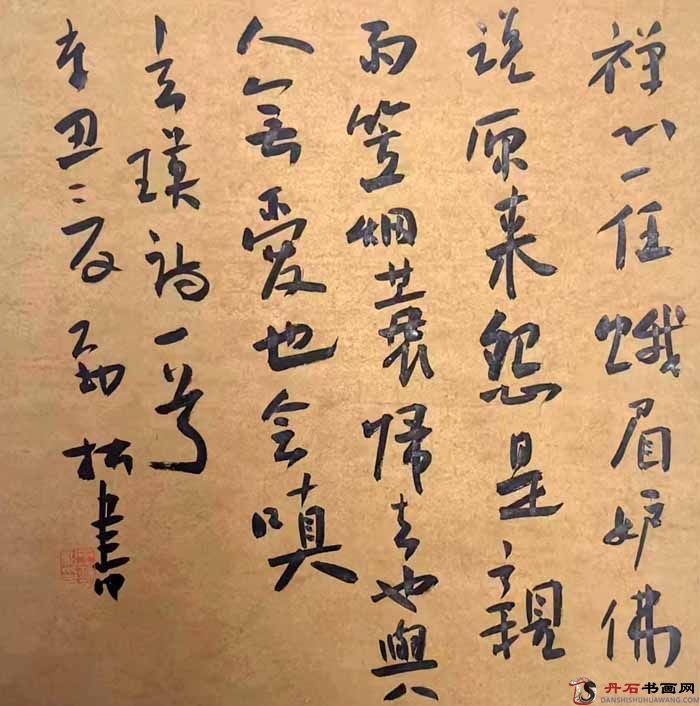 禅心一任蛾眉妒佛
说原来怨是親
雨笠烟蓑帰去也與
人無愛也会嗔
玄瑛诗一首
辛丑之夏 松書
丹石书画网
DANSHISHUHUAWANG.COM